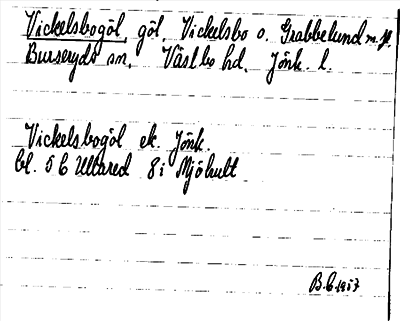 Vickelsbogöl, göl, Vickelsbo o. Grabbelund m. fl.
Burseryds sn, Västbo hd, Jönk. l.
Vickelsbogöl ek. Jönk.
bl. 5 C Ullared 8 i Mjöhult